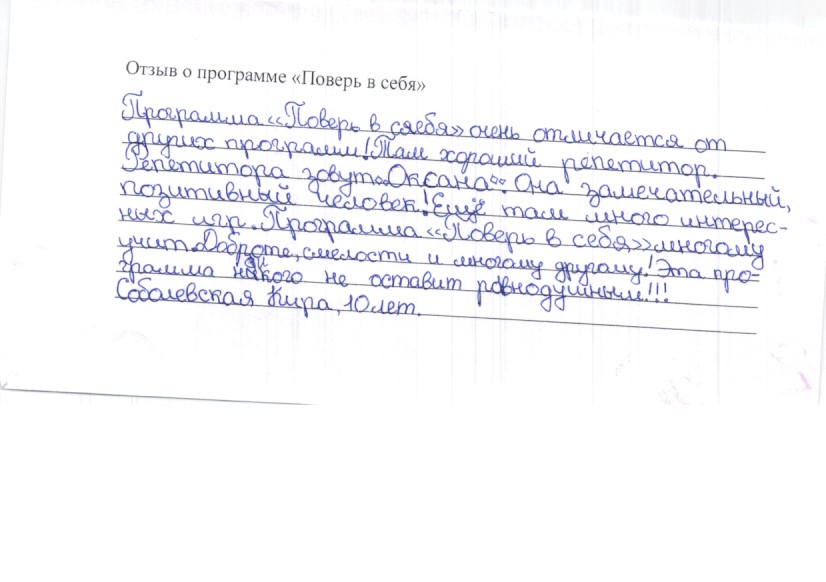 Отзыв о программе «Поверь в себя»
Программа «Поверь в сяебя» очень отличается от
других программ! Там хороший репетитор.
Репетитора зовут „Оксана“. Она замечательный,
позитивный человек! Ещё там много интерес-
ных игр. Программа «Поверь в себя» многому
учит. Доброте, смелости и многому другому! Эта про=
грамма никого не оставит ровнодушным!!!
Соболевская Кира, 10 лет.